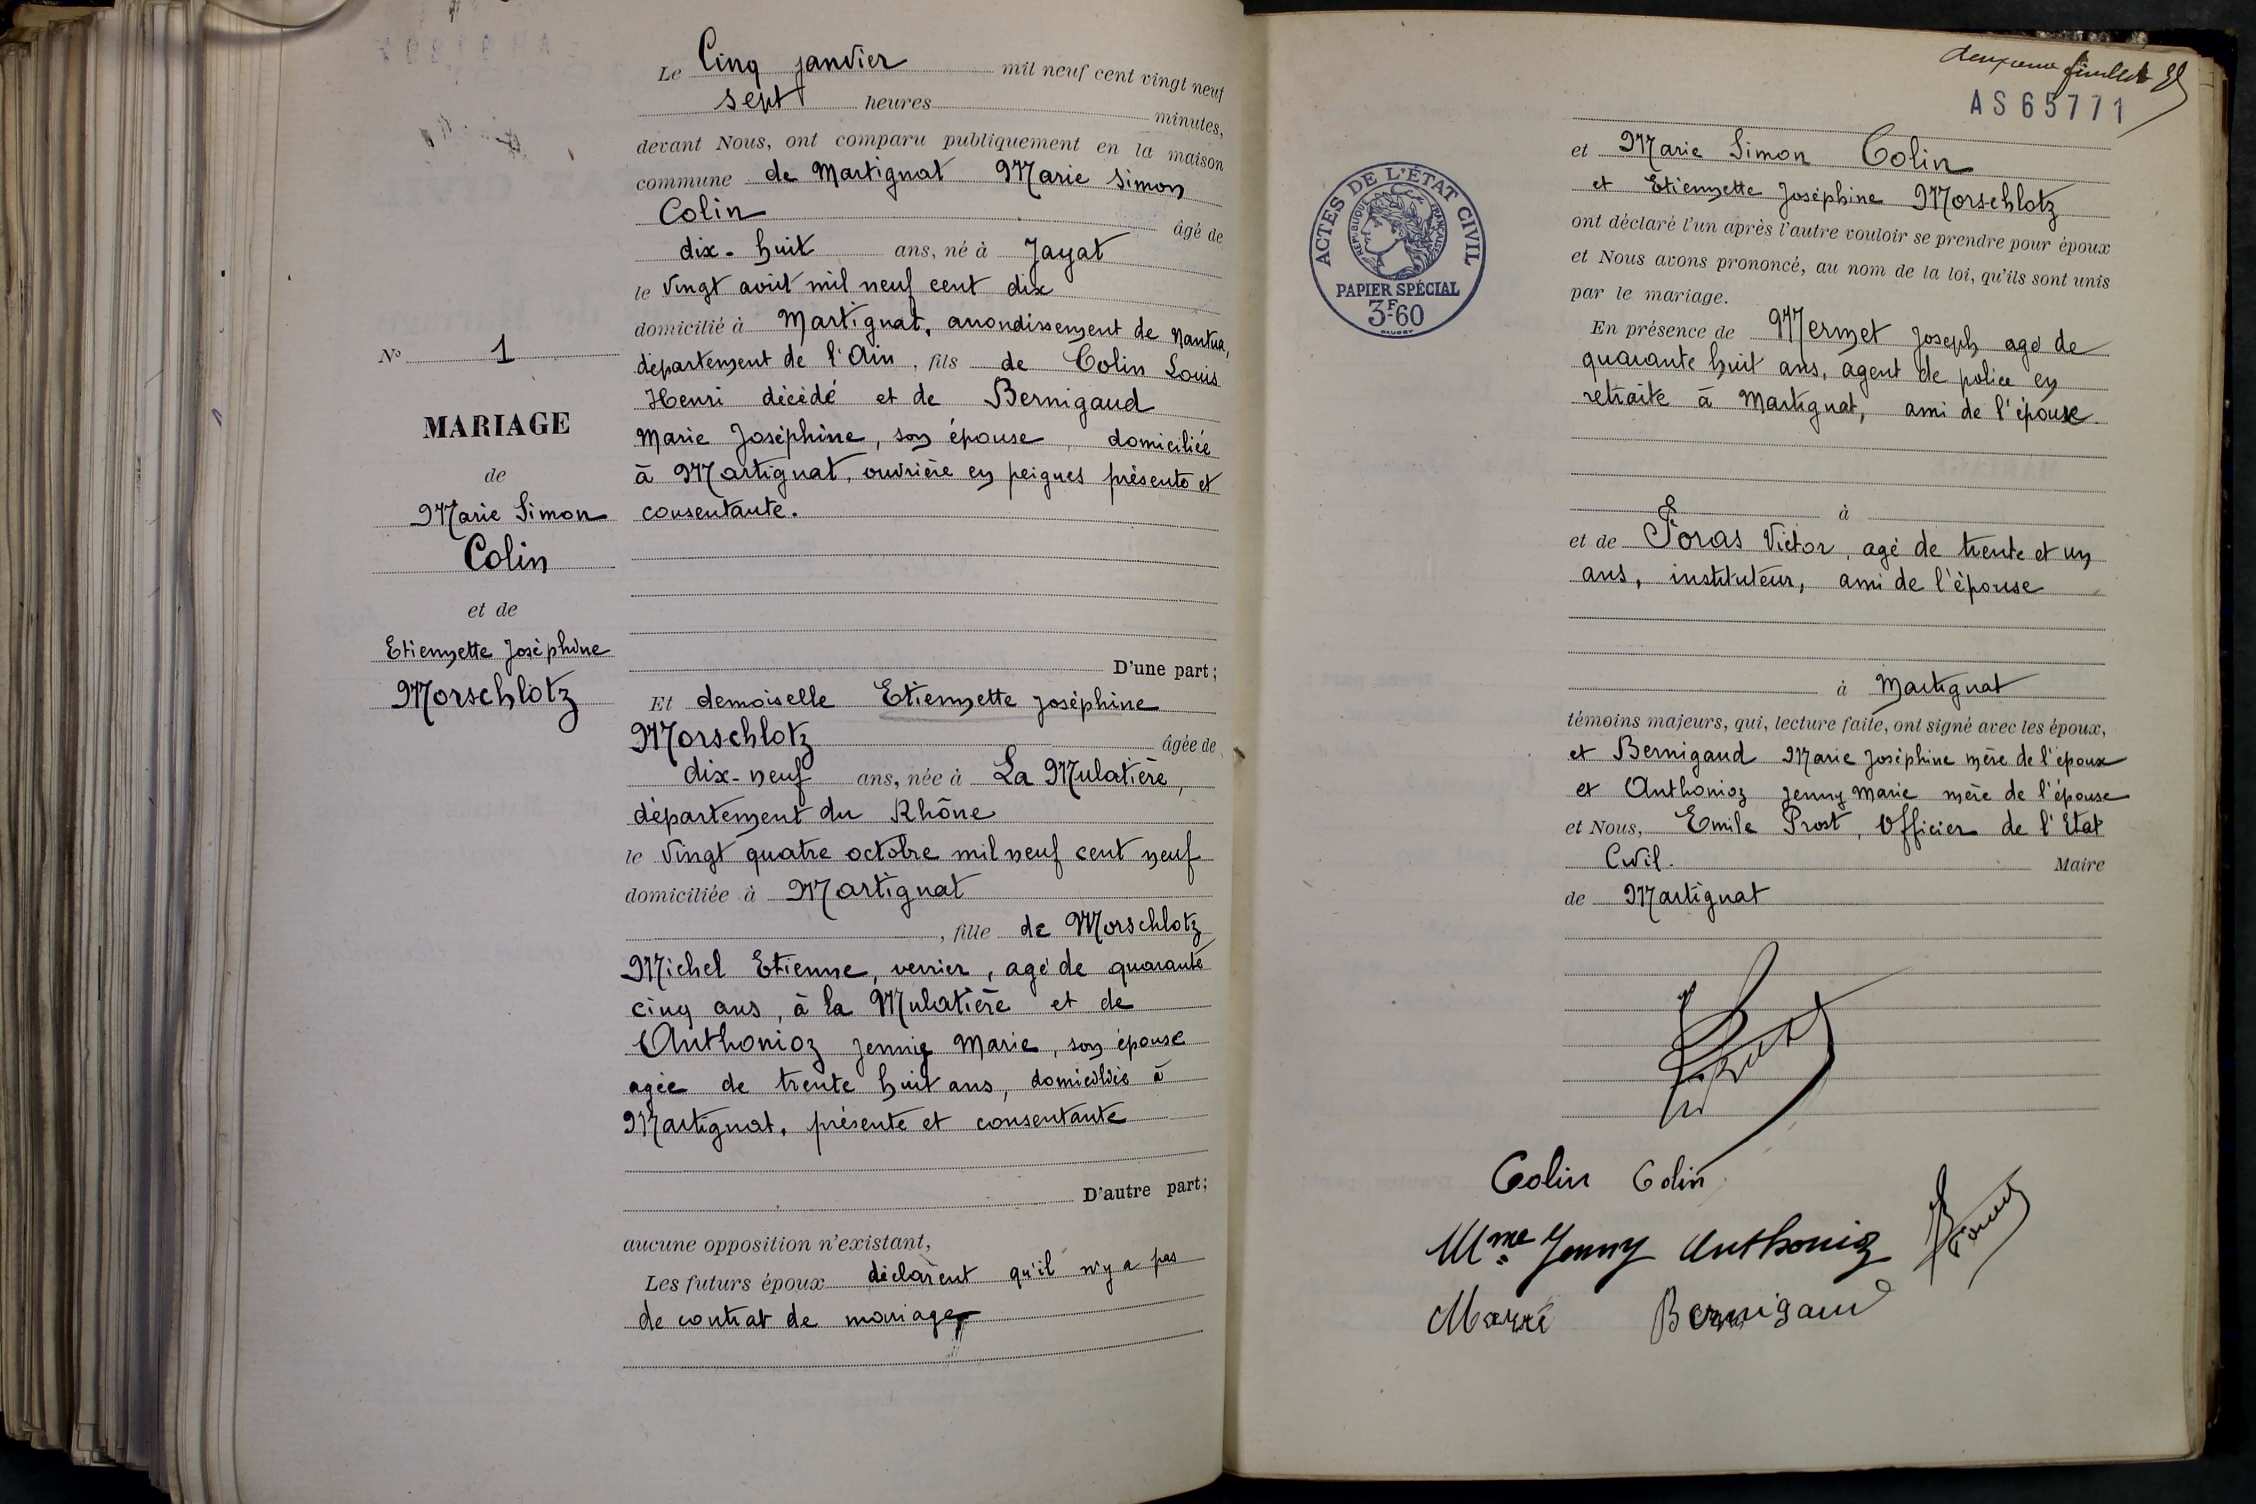 Le Cinq janvier mil neuf cent vingt neuf
sept heures minutes,
devant Nous, ont comparu publiquement en la maison
commune de Martignat Marie Simon
Colin âgé de
dix-huit ans, né à Jayat
le vingt avril mil neuf cent dix
domicilié à Martignat, arrondissement de Nantua,
département de l'Ain, fils de Colin Louis
Henri décédé et de Bernigaud
Marie Joséphine, son épouse, domiciliée
à Martignat, ouvrière en peignes présente et
consentante.
D'une part;
N° 1
MARIAGE
de
Marie Simon
Colin
et de
Etiennette Joséphine
Morschlotz
Et demoiselle Etiennette Joséphine
Morschlotz âgée de
dix-neuf ans, née à La Mulatière,
département du Rhône
le vingt quatre octobre mil neuf cent neuf
domiciliée à Martignat
, fille de Morschlotz
Michel Etienne, verrier, agé de quarante
cinq ans, à la Mulatière et de
Anthonioz Jennie Marie, son épouse
agée de trente huit ans, domiciliée à
Martignat, présente et consentante
D'autre part;
aucune opposition n'existant,
Les futurs époux déclarent qu'il n'y a pas
de contrat de mariage
deuxième feuillet
AS65771
ACTES DE L'ÉTAT CIVIL
RÉPUBLIQUE FRANÇAISE
PAPIER SPÉCIAL
3F.60
et Marie Simon Colin
et Etiennette Joséphine Morschlotz
ont déclaré l'un après l'autre vouloir se prendre pour époux
et Nous avons prononcé, au nom de la loi, qu'ils sont unis
par le mariage.
En présence de Mermet Joseph agé de
quarante huit ans, agent de police en
retraite à Martignat, ami de l'épouse.
à
et de Foras Victor, agé de trente et un
ans, instituteur, ami de l'épouse
à Martignat
témoins majeurs, qui, lecture faite, ont signé avec les époux,
et Bernigaud Marie Joséphine mère de l'époux
et Anthonioz Jenny Marie mère de l'épouse
et Nous, Emile Prost, Officier de l'Etat
Civil. Maire
de Martignat
Colin Colin
Mme Jenny Anthonioz
Bernigaud